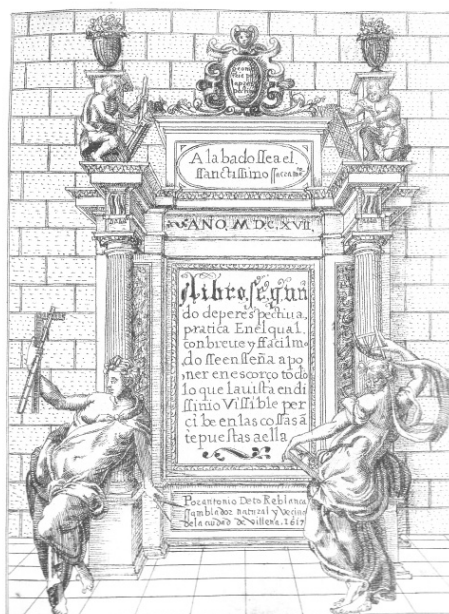 A labado ssea el
ssanctissimo ssacram.to
ANO. M DC. XVII.
Libro, segun
do de perespectiva,
pratica En el qual,
con breve y ffacil mo
do sse enseña a po
ner en escorço todo
lo que la vista en di
ssinio Vissible per
cibe en las cossas ã
te puestas a ella
Por antonio De to Reblanca
Samblador natural y Vecino
de la ciudad de Villena. 1617